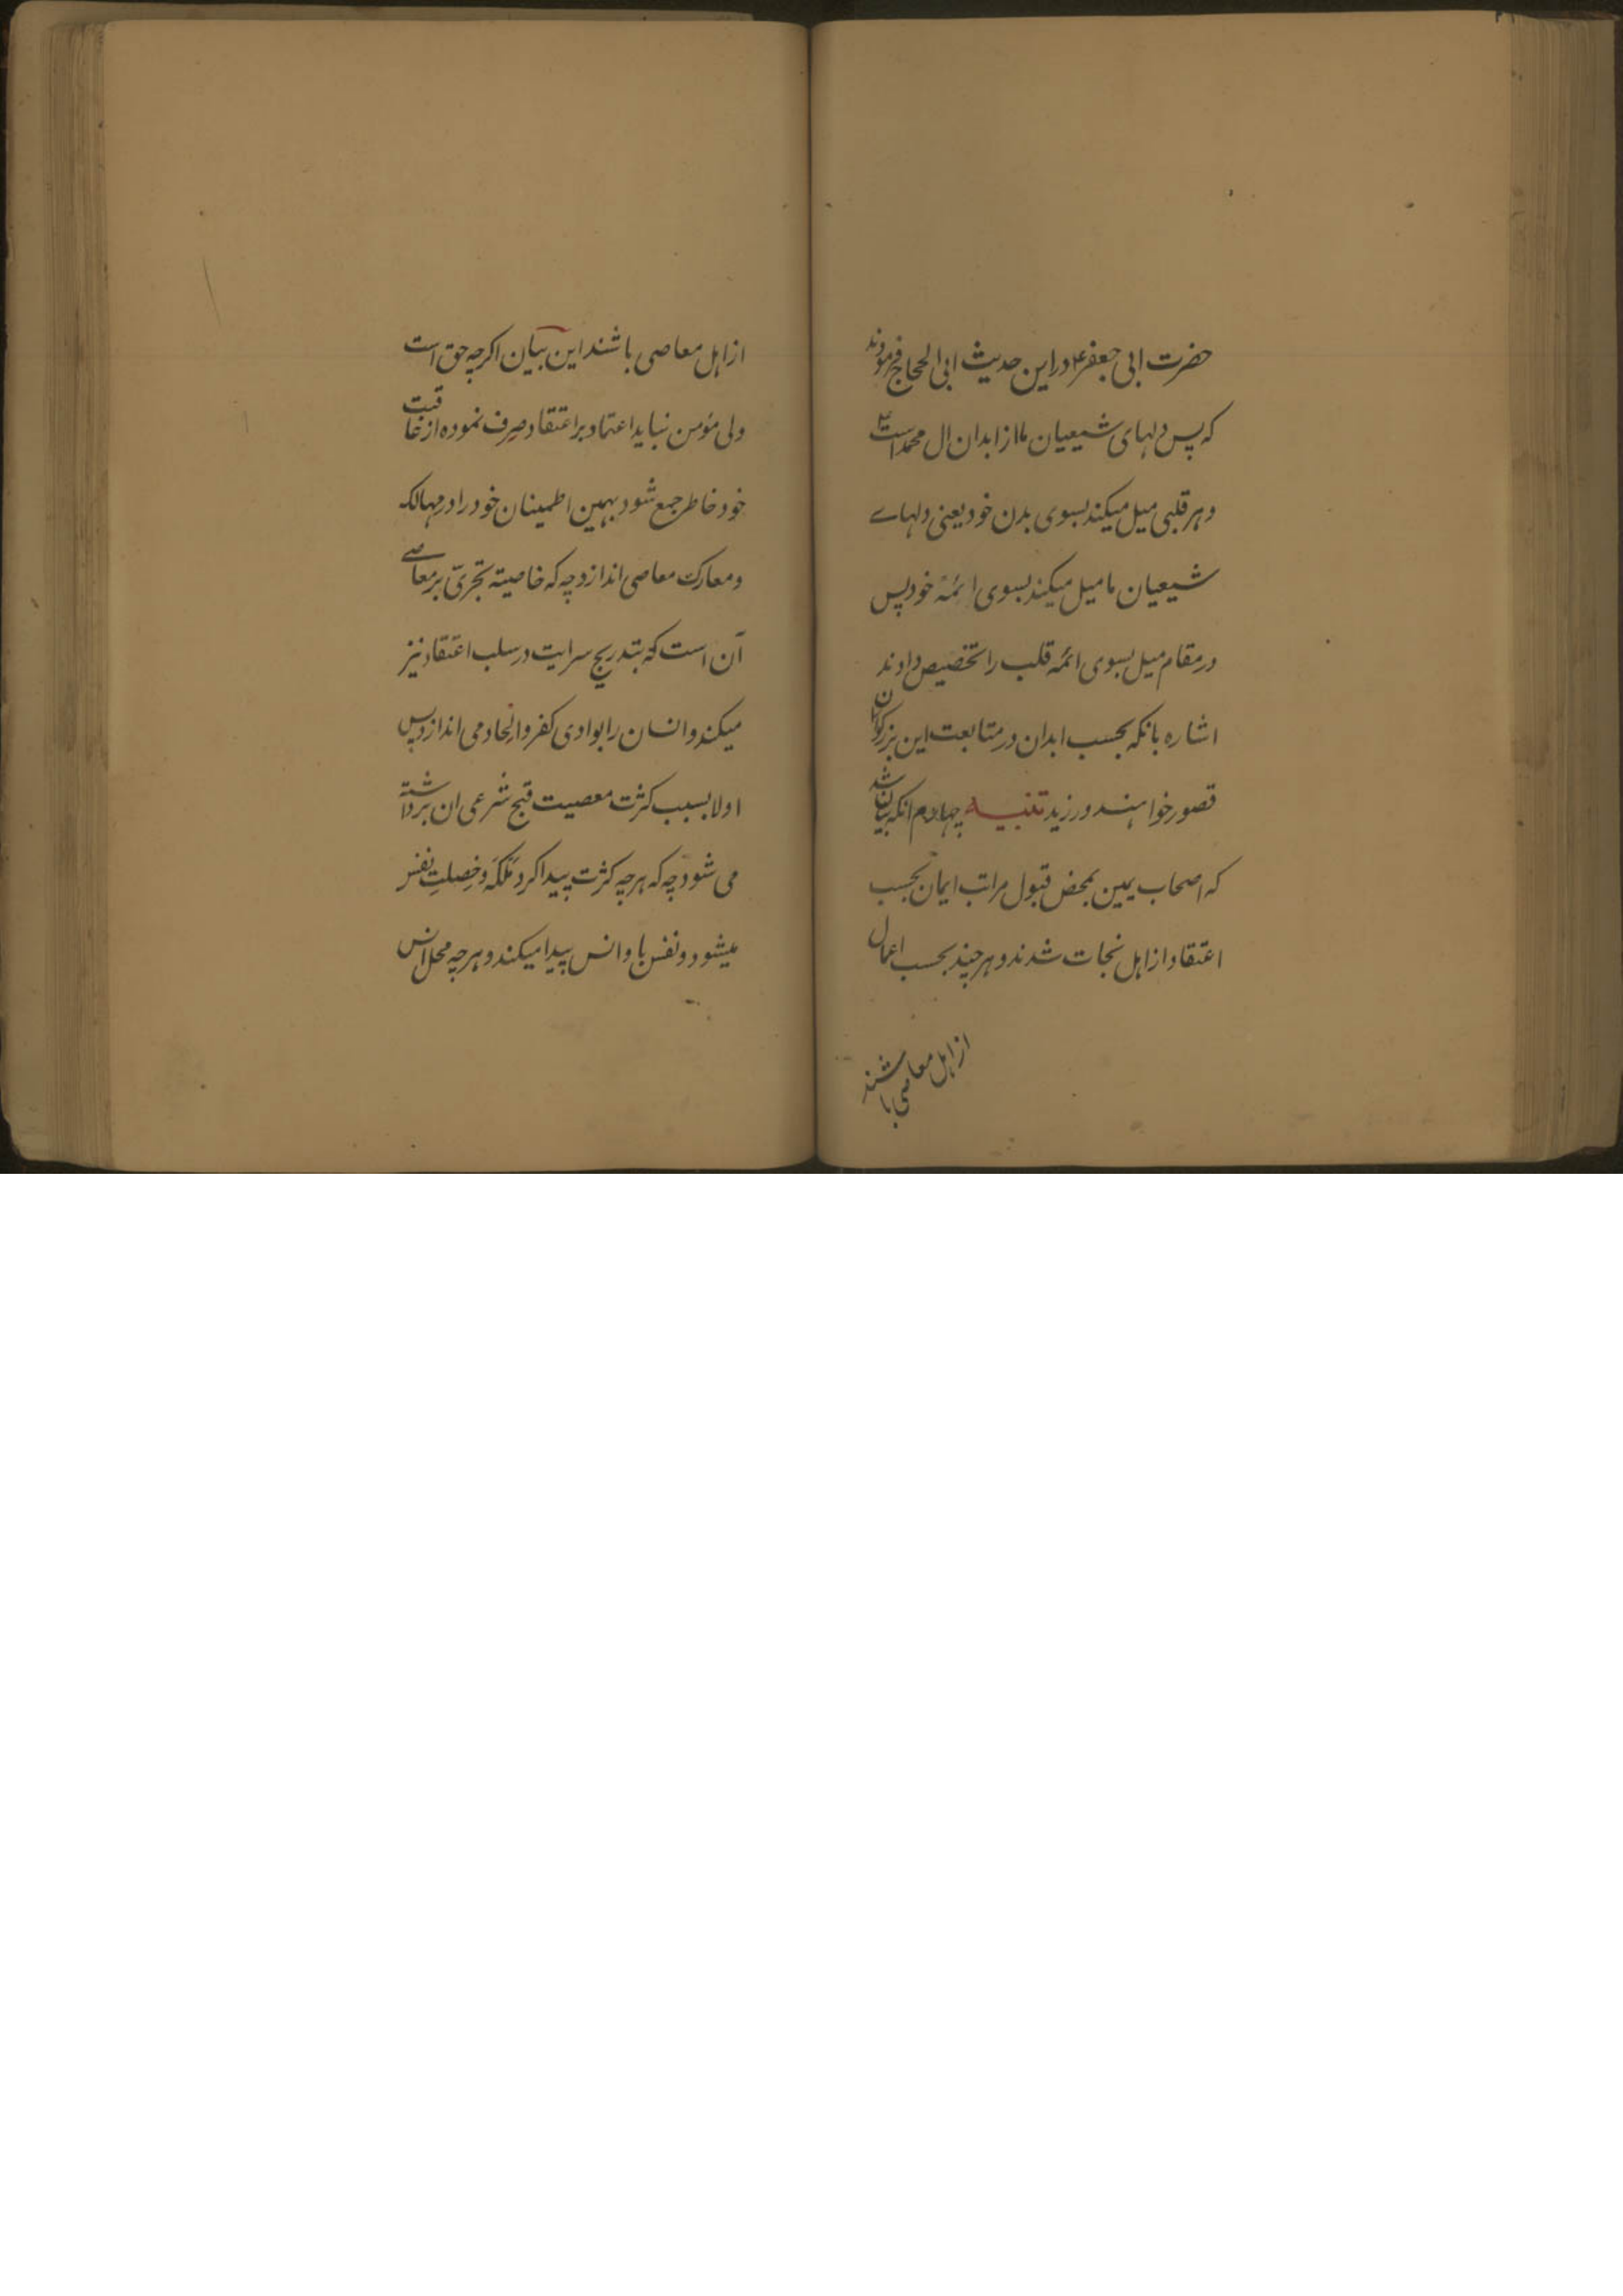 حضرت ابی جعفر ع در این حدیث ابی الحجاج فرمودند
که پس دلهای شیعیان ما از ابدان ال محمد است
و هر قلبی میل میکند بسوی بدن خود یعنی دلهاے
شیعیان ما میل میکند بسوی ائمۀ خود پس
در مقام میل بسوی ائمه قلب را تخصیص دادند
اشاره بانکه بحسب ابدان در متابعت این بزرکواران
قصور خواهند ورزید تنبیه چهارم انکه بیان شد
که اصحاب یمین بمحض قبول مراتب ایمان بحسب
اعتقاد از اهل نجات شدند و هر چند بحسب اعمال
از اهل معاصی باشند
از اهل معاصی باشند این بیان اکرچه حق است
ولی مؤمن نباید اعتماد بر اعتقاد صرف نموده از عاقبت
خود خاطر جمع شود بهمین اطمینان خود را در مهالک
و معارک معاصی اندازد چه که خاصیته تجرّی بر معاصے
آن است که بتدریج سرایت در سلب اعتقاد نیز
میکند و انسان را بوادی کفر و الحاد می اندازد پس
اولا بسبب کثرت معصیت قبح شرعی ان برداشته
می شود چه که هر چه کثرت پیدا کرد ملکه و خصلت نفس
میشود و نفس باو انس پیدا میکند و هر چه محل انس